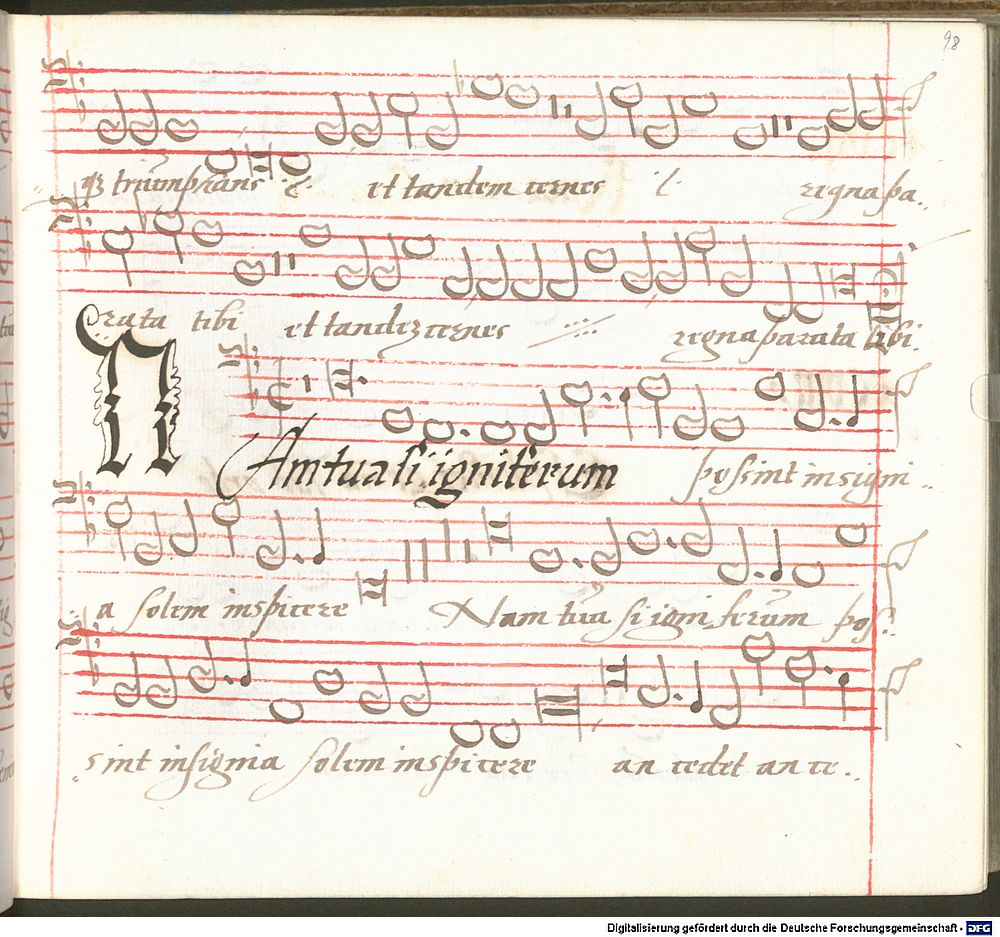 98
triumphans et tandem cernes regna pa..
rata tibi et tandez cernes regna parata tibi.
NAm tua si igniferum possint insigni..
a solem inspicere Nam tua si igniferum pos..
sint insignia solem inspicere an cedet an ce..
Digitalisierung gefördert durch die Deutsche Forschungsgemeinschaft - DFG